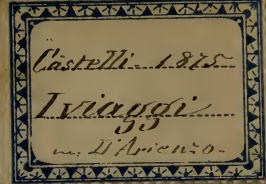 Castelli - 1875
I viaggi
m. D'Arienzo -